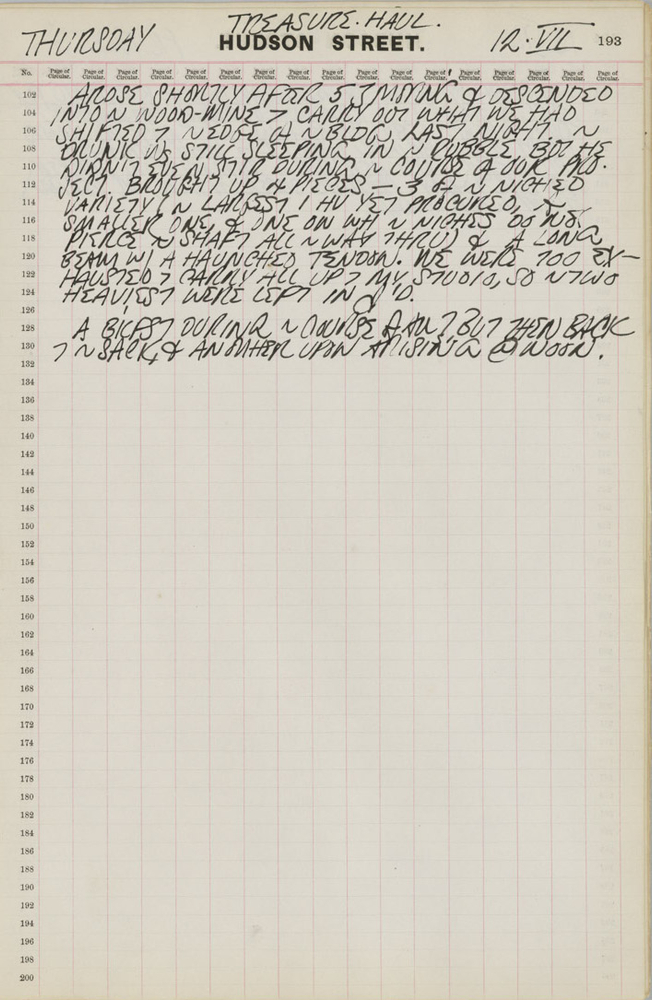 TREASURE·HAUL.
THURSDAY HUDSON STREET. 12·VII 193
No. Page of Circular. Page of Circular. Page of Circular. Page of Circular. Page of Circular. Page of Circular. Page of Circular. Page of Circular. Page of Circular. Page of Circular. Page of Circular. Page of Circular. Page of Circular. Page of Circular. Page of Circular. Page of Circular. Page of Circular.
102 AROSE SHORTLY AFTER 5 & DESCENDED
104 INTO ~ WOOD-MINE 7 CARRY OUT WHAT WE HAD
106 SHIFTED 7 ~ EDGE OF ~ BLDG LAST NIGHT. ~
108 DRUNK WS STILL SLEEPING IN ~ RUBBLE BUT HE
110 DIDN'T EVEN STIR DURING ~ COURSE OF OUR PRO-
112 JECT. BROUGHT UP 4 PIECES — 3 OF ~ NICHED
114 VARIETY (~ LARGEST I HV YET PROCURED, A
116 SMALLER ONE, & ONE ON WH ~ NICHES DO NOT
118 PIERCE ~ SHAFT ALL ~ WAY THRU) & A LONG
120 BEAM W/ A HAUNCHED TENDON. WE WERE TOO EX-
122 HAUSTED 7 CARRY ALL UP 7 MY STUDIO, SO ~ TWO
124 HEAVIEST WERE LEFT IN
126
128 A BKFST DURING ~ COURSE BUT THEN BACK
130 7 ~ SACK, & ANOTHER UPON ARISING @ NOON.
132
134
136
138
140
142
144
146
148
150
152
154
156
158
160
162
164
166
168
170
172
174
176
178
180
182
184
186
188
190
192
194
196
198
200